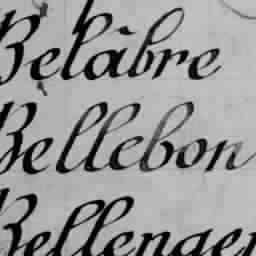 Belâbre
Bellebon
Bellenger